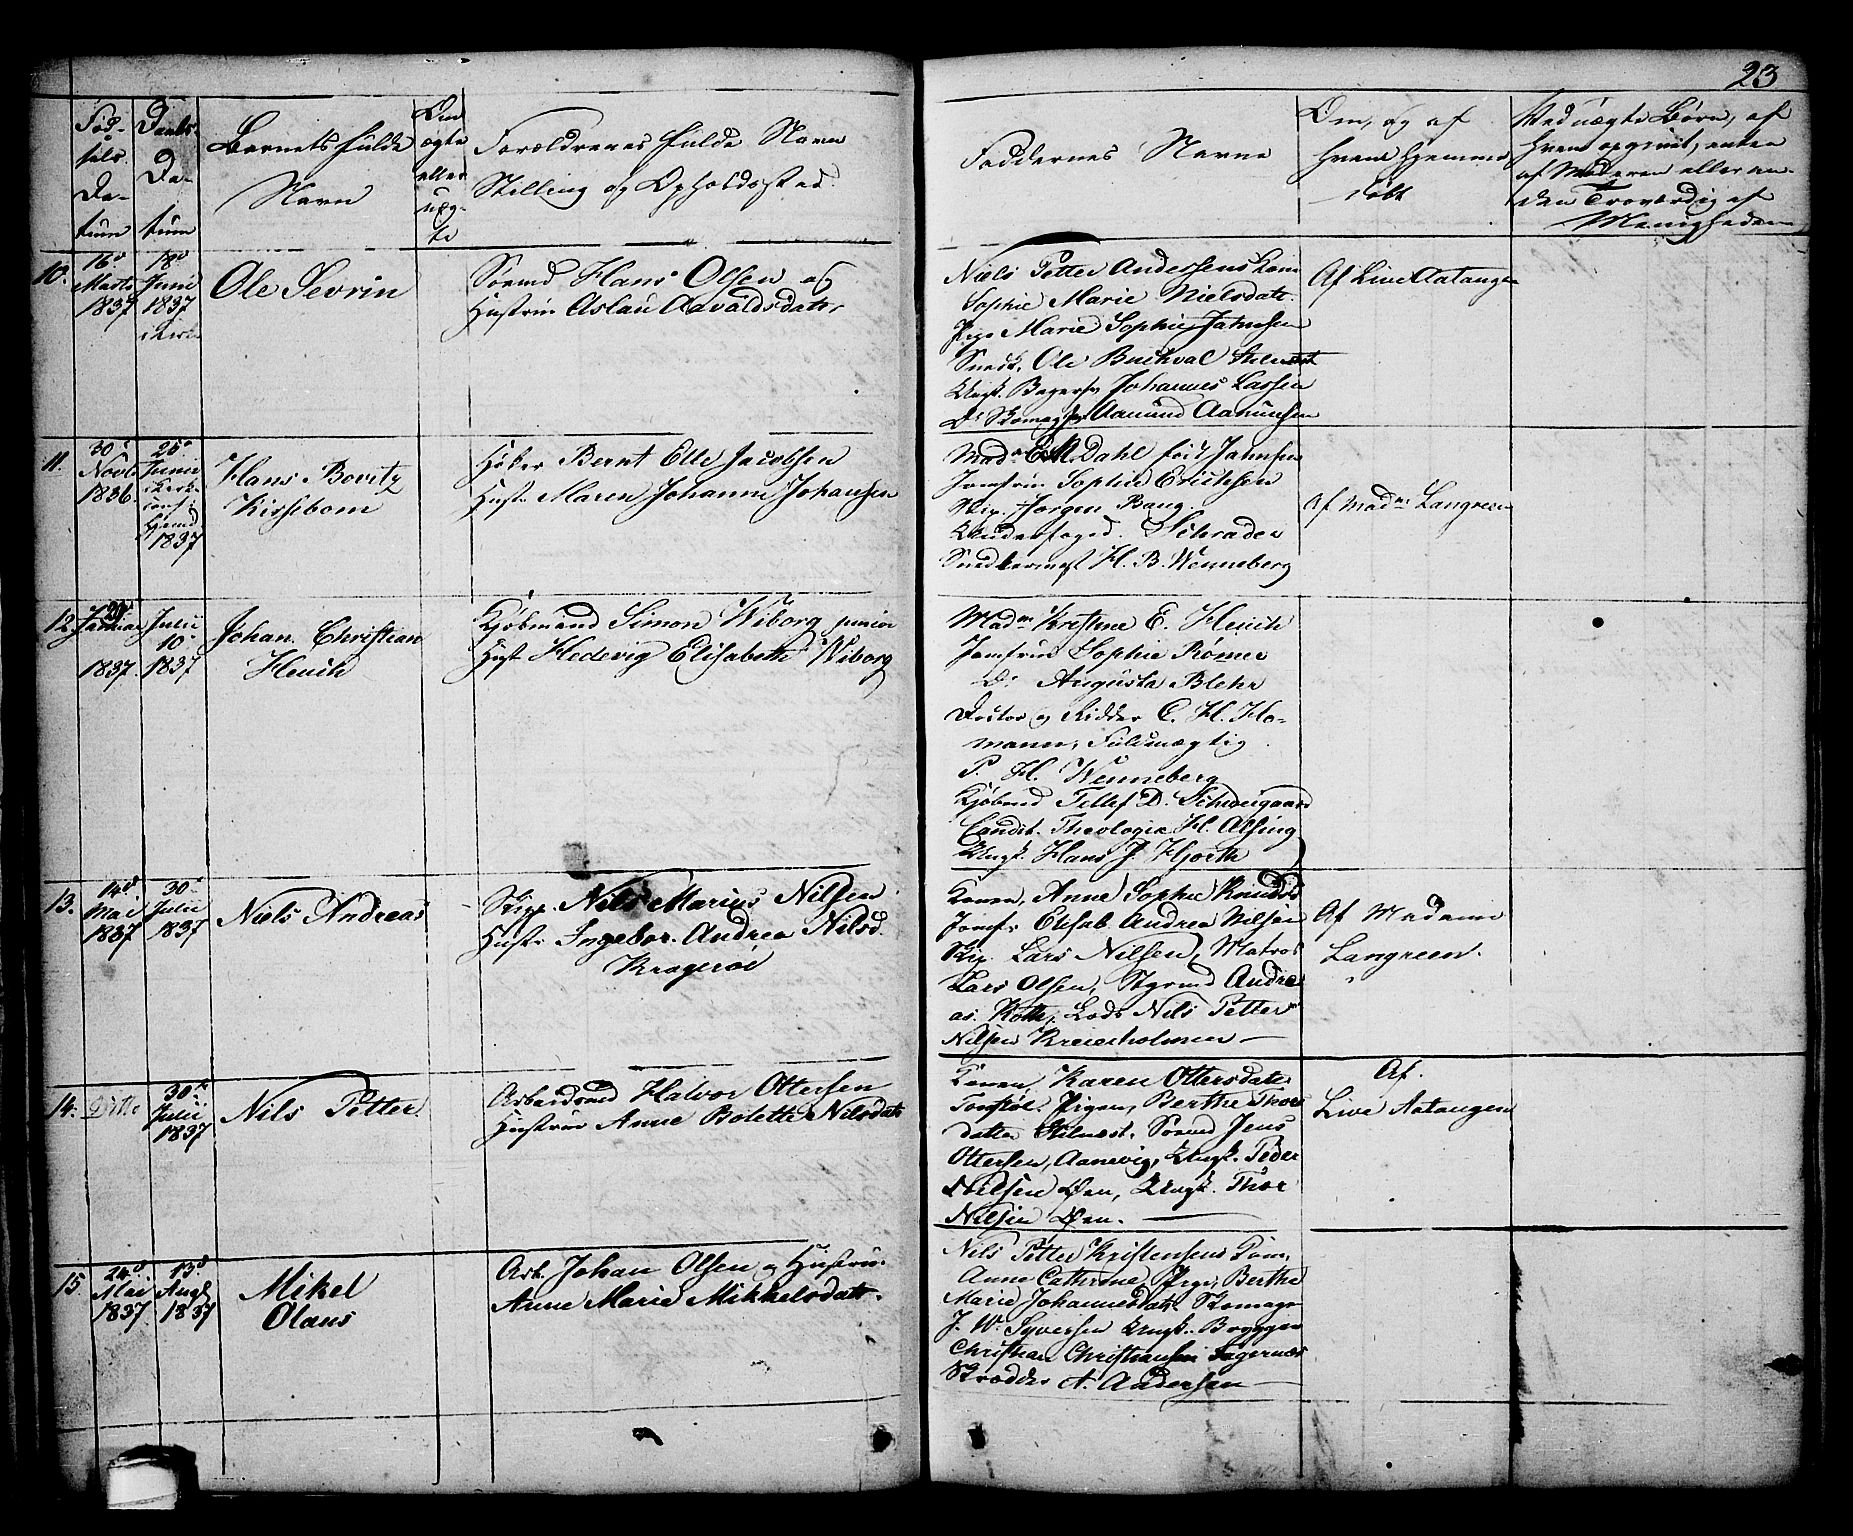 23
Fød-
sels
Da-
tum
Daabs
Da-
tum
Barnets fulde
Navn
Om
ægte
eller
uæg-
te
Forældrenes fulde Navn
Stilling og Opholdssted.
Faddernes Navne
Om, og af
hvem hjemme
døbt
Ved uægte Børn, af
hvem opgivet, enten
af Moderen eller an-
den Troværdig af
Menigheden
10.
16d
Marts
1837
18d
Juni
1837
i Kirken
Ole Sevrin
Sømd Hans Olsen og
Hustru Aslau Aavaldsdater
Niels Petter Andersens Kone
Sophie Marie Nielsdatt.
Pige Marie Sophie Jahnsen
Snedk. Ole Buchval
Ungk. Bagersv Johannes Lassen
Do Skomagsv Aamund Aamunsen
Af Live Aatangen
11.
30d
Novbr
1836
25d
Juni
i Kirk-
conf:
Hjemd
1837
Hans Bovitz
Kissebom
Høker Bernt Elle Jacobsen
Hust. Maren Johanne Johansen
Madm E. M. Dahl fød Jahnsen
Jomfru Sophie Erichsen
Skip. Jørgen Bang.
Underfoged. Schrader
Snedkermest H. B. Wenneberg
Af Madm Langreen
12.
Januar
1837.
Julii
10d
1837
Johan Christian
Heuch
Kjøbmand Simon Wiborg junior
Hust Hedevig Elisabeth Wiborg
Madm Kristine E. Heuch
Jomfru Sophie Rømer
Do Augusta Blehr
Doctor og Ridder C. H. Ho-
mann, Fuldmægtig
P. H. Wenneberg
Kjøbmd Tellef D. Schweigaard
Candit. Theologiæ H. Alsing
Ungk. Hans J. Hjorth
13.
14d
Mai
1837
30d
Julii
1837
Niels Andreas
Skip. Nils Marius Nilsen
Hustr Ingebor. Andrea Nilsd.
Kragerøe
Konen, Anne Sophie Knudsd
Jomfr Elisab. Andrea Nilsen
Skip. Lars Nilsen, Matros
Lars Olsen, Styrmd Andre
as. Roth, Lods Nils Petter
Nilsen Kreierholmen
Af Madame
Langreen.
14.
Ditto
30d
Julii
1837
Nils Petter.
Arbeidsmd Halvor Ottersen
Hustrue Anne Bolette Nilsdatt
Konen, Karen Ottersdatter
Pigen, Berthe Thors
datter Sømd Jens
Ottersen, Aanevig, Ungk. Peder
Nielsen Øen, Ungk. Thor
Nilsen Øen.
Af.
Live Aatangen
15
24d
Mai
1837.
13d
Augt
1837
Mikel
Olaus
Arb. Johan Olsen og Hustru.
Anne Marie Mikkelsdatt.
Nils Petter Kristensens Kone,
Anne Cathrine, Pige, Berthe
Marie Johannesdatt. Skomager
J. W. Syversen Ungk. Brygger
Christian Christiansen Fagernæs
Skrædder A. Andersen